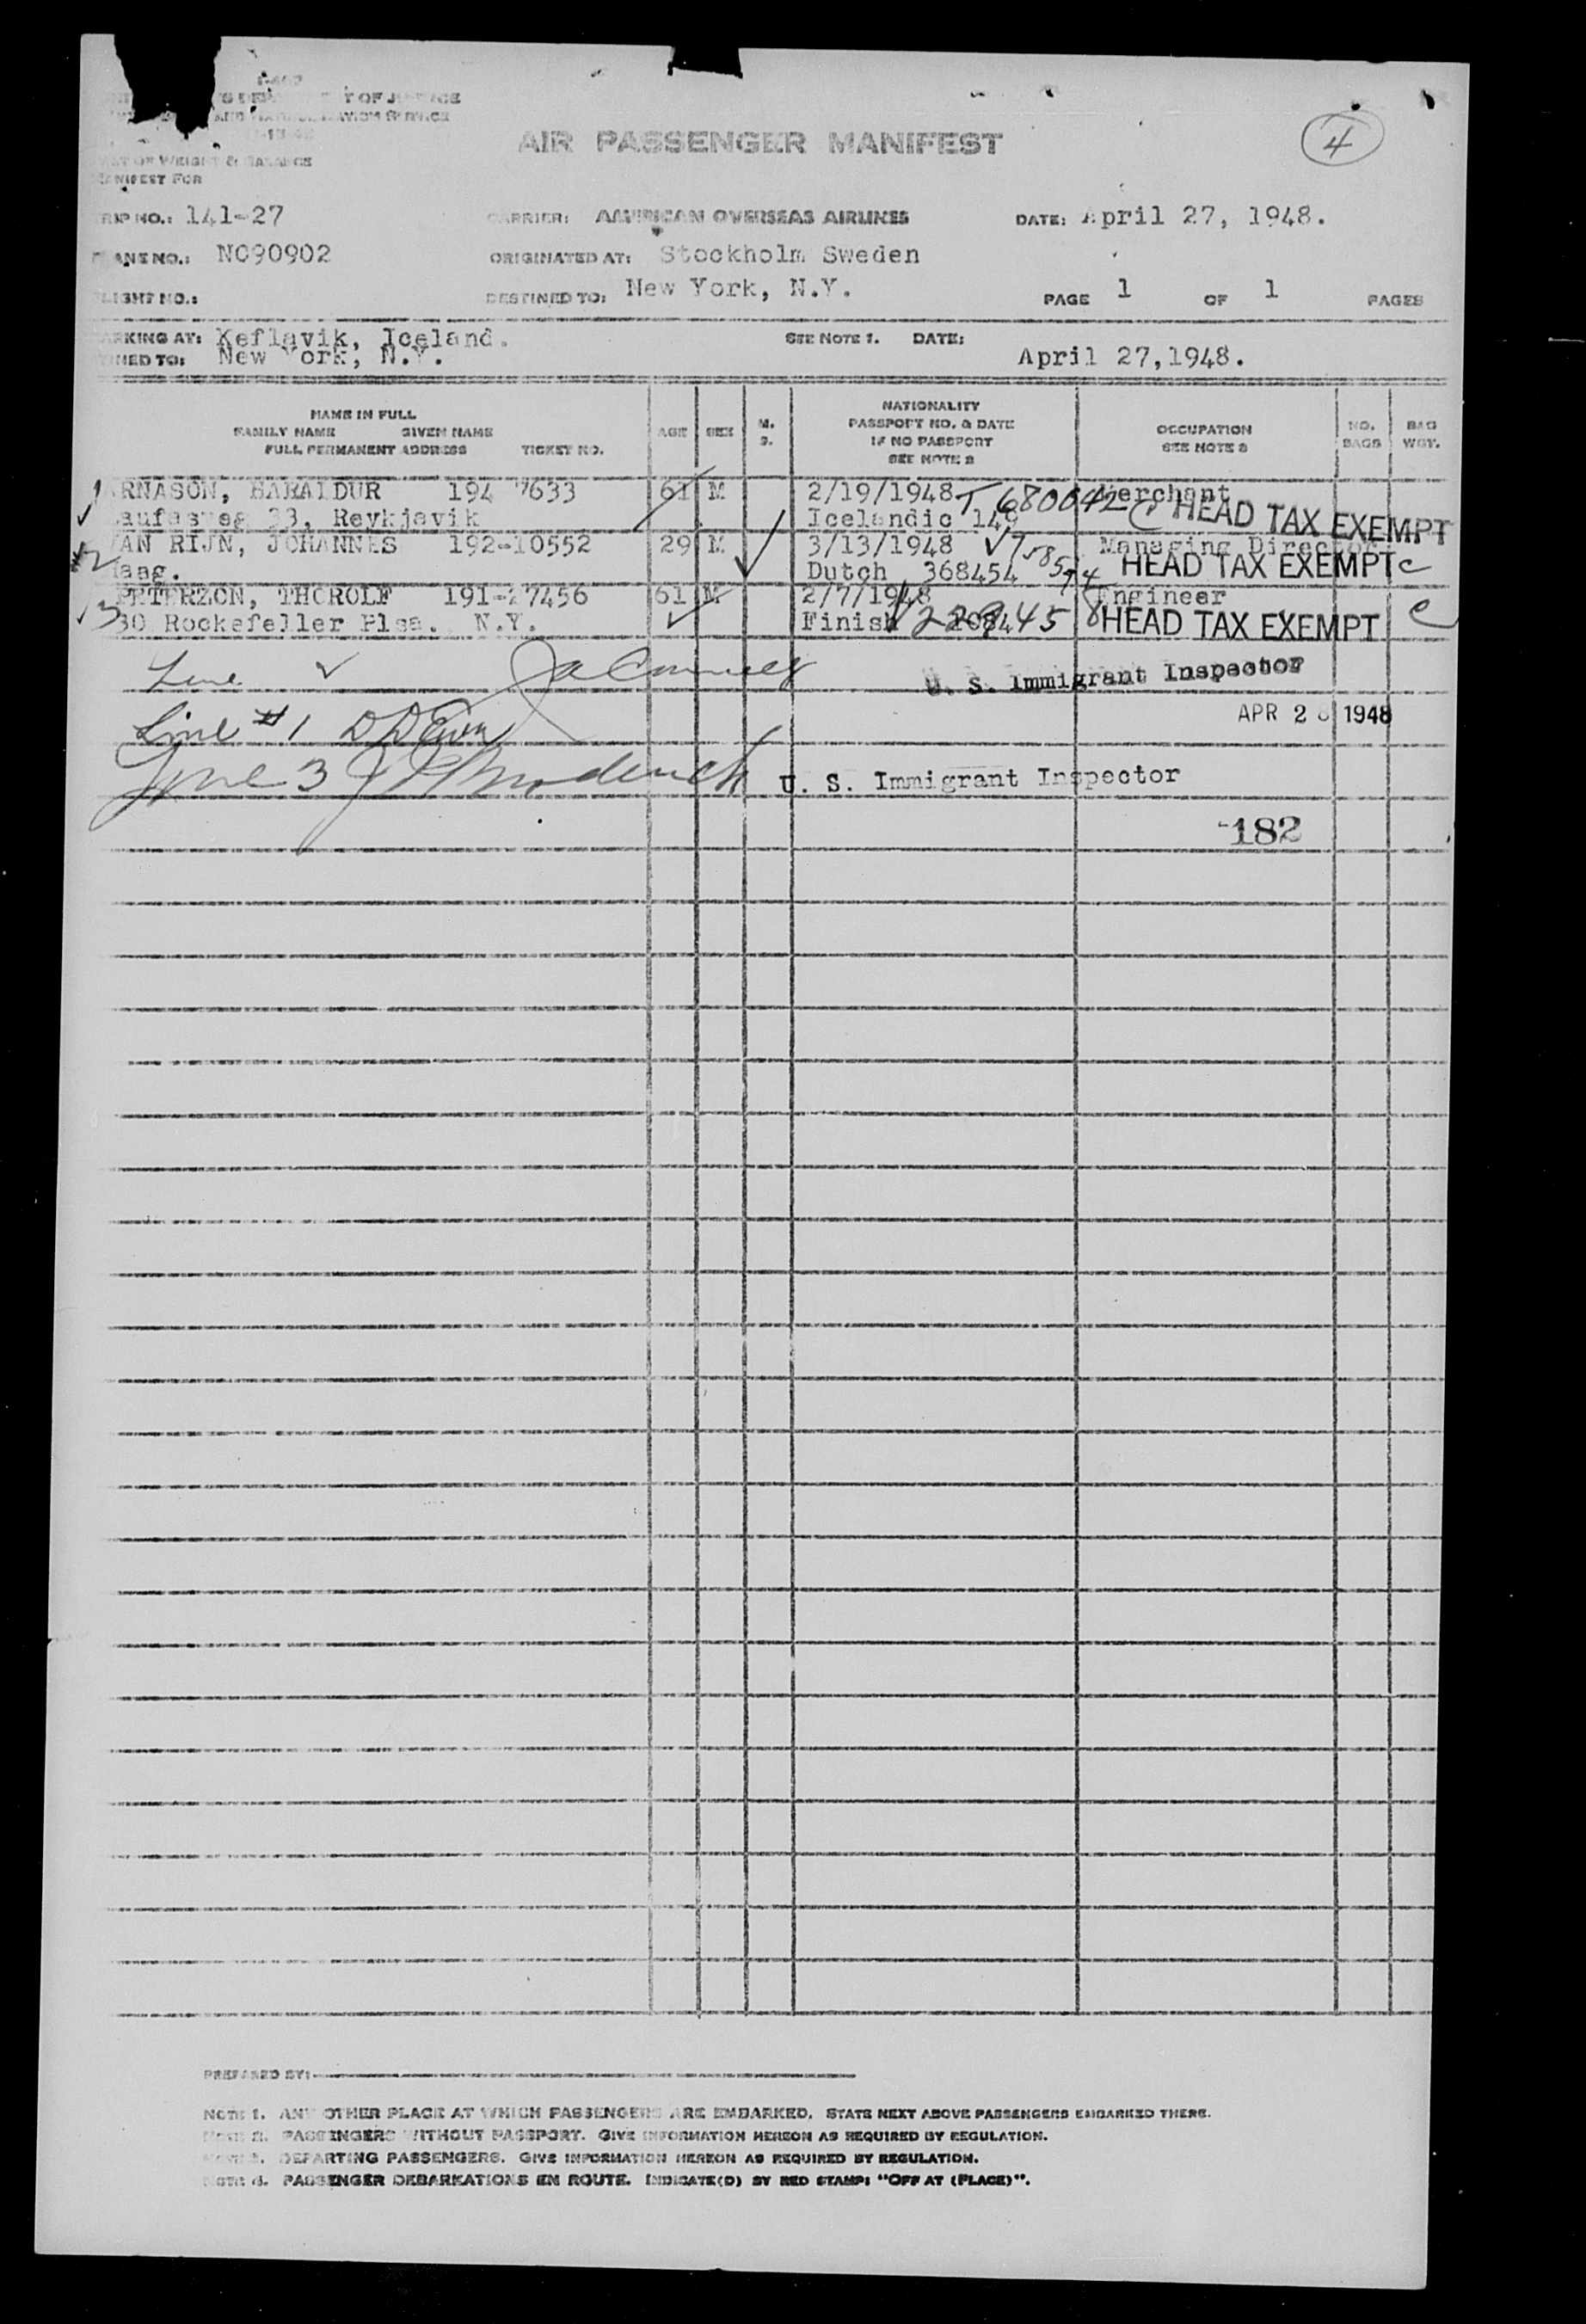 AIR PASSENGER MANIFEST
4
MANIFEST FOR
TRIP NO.: 141-27 CARRIER: AMERICAN OVERSEAS AIRLINES DATE: April 27, 1948.
NC90902 ORIGINATED AT: Stockholm Sweden
DESTINED TO: New York, N.Y. PAGE 1 OF 1 PAGES
Keflavik, Iceland. SEE NOTE 1. DATE:
New York, N.Y. April 27,1948.
NAME IN FULL
FAMILY NAME GIVEN NAME
FULL PERMANENT ADDRESS TICKET NO.
AGE SEX M. S.
NATIONALITY
PASSPORT NO. & DATE
IF NO PASSPORT
SEE NOTE 2
OCCUPATION
SEE NOTE 3
NO. BAGS BAG WGT.
1 RNASON, HARALDUR 194 7633 61 M 2/19/1948 T 680042 Merchant
aufasveg 33, Reykjavik Icelandic 149 HEAD TAX EXEMPT
2 VAN RIJN, JOHANNES 192-10552 29 M 3/13/1948 Managing Director
Haag. Dutch 368454 HEAD TAX EXEMPT c
3 PETERZON, THOROLF 191-27456 61 M 2/7/1948 Engineer
30 Rockefeller Plsa. N.Y. Finish HEAD TAX EXEMPT c
Line
U. S. Immigrant Inspector
APR 28 1948
Line #1
Line 3
U. S. Immigrant Inspector
182
PREPARED BY:
NOTE 1. ANY OTHER PLACE AT WHICH PASSENGERS ARE EMBARKED. STATE NEXT ABOVE PASSENGERS EMBARKED THERE.
NOTE 2. PASSENGERS WITHOUT PASSPORT. GIVE INFORMATION HEREON AS REQUIRED BY REGULATION.
NOTE 3. DEPARTING PASSENGERS. GIVE INFORMATION HEREON AS REQUIRED BY REGULATION.
NOTE 4. PASSENGER DEBARKATIONS EN ROUTE. INDICATE(D) BY RED STAMP: "OFF AT (PLACE)".